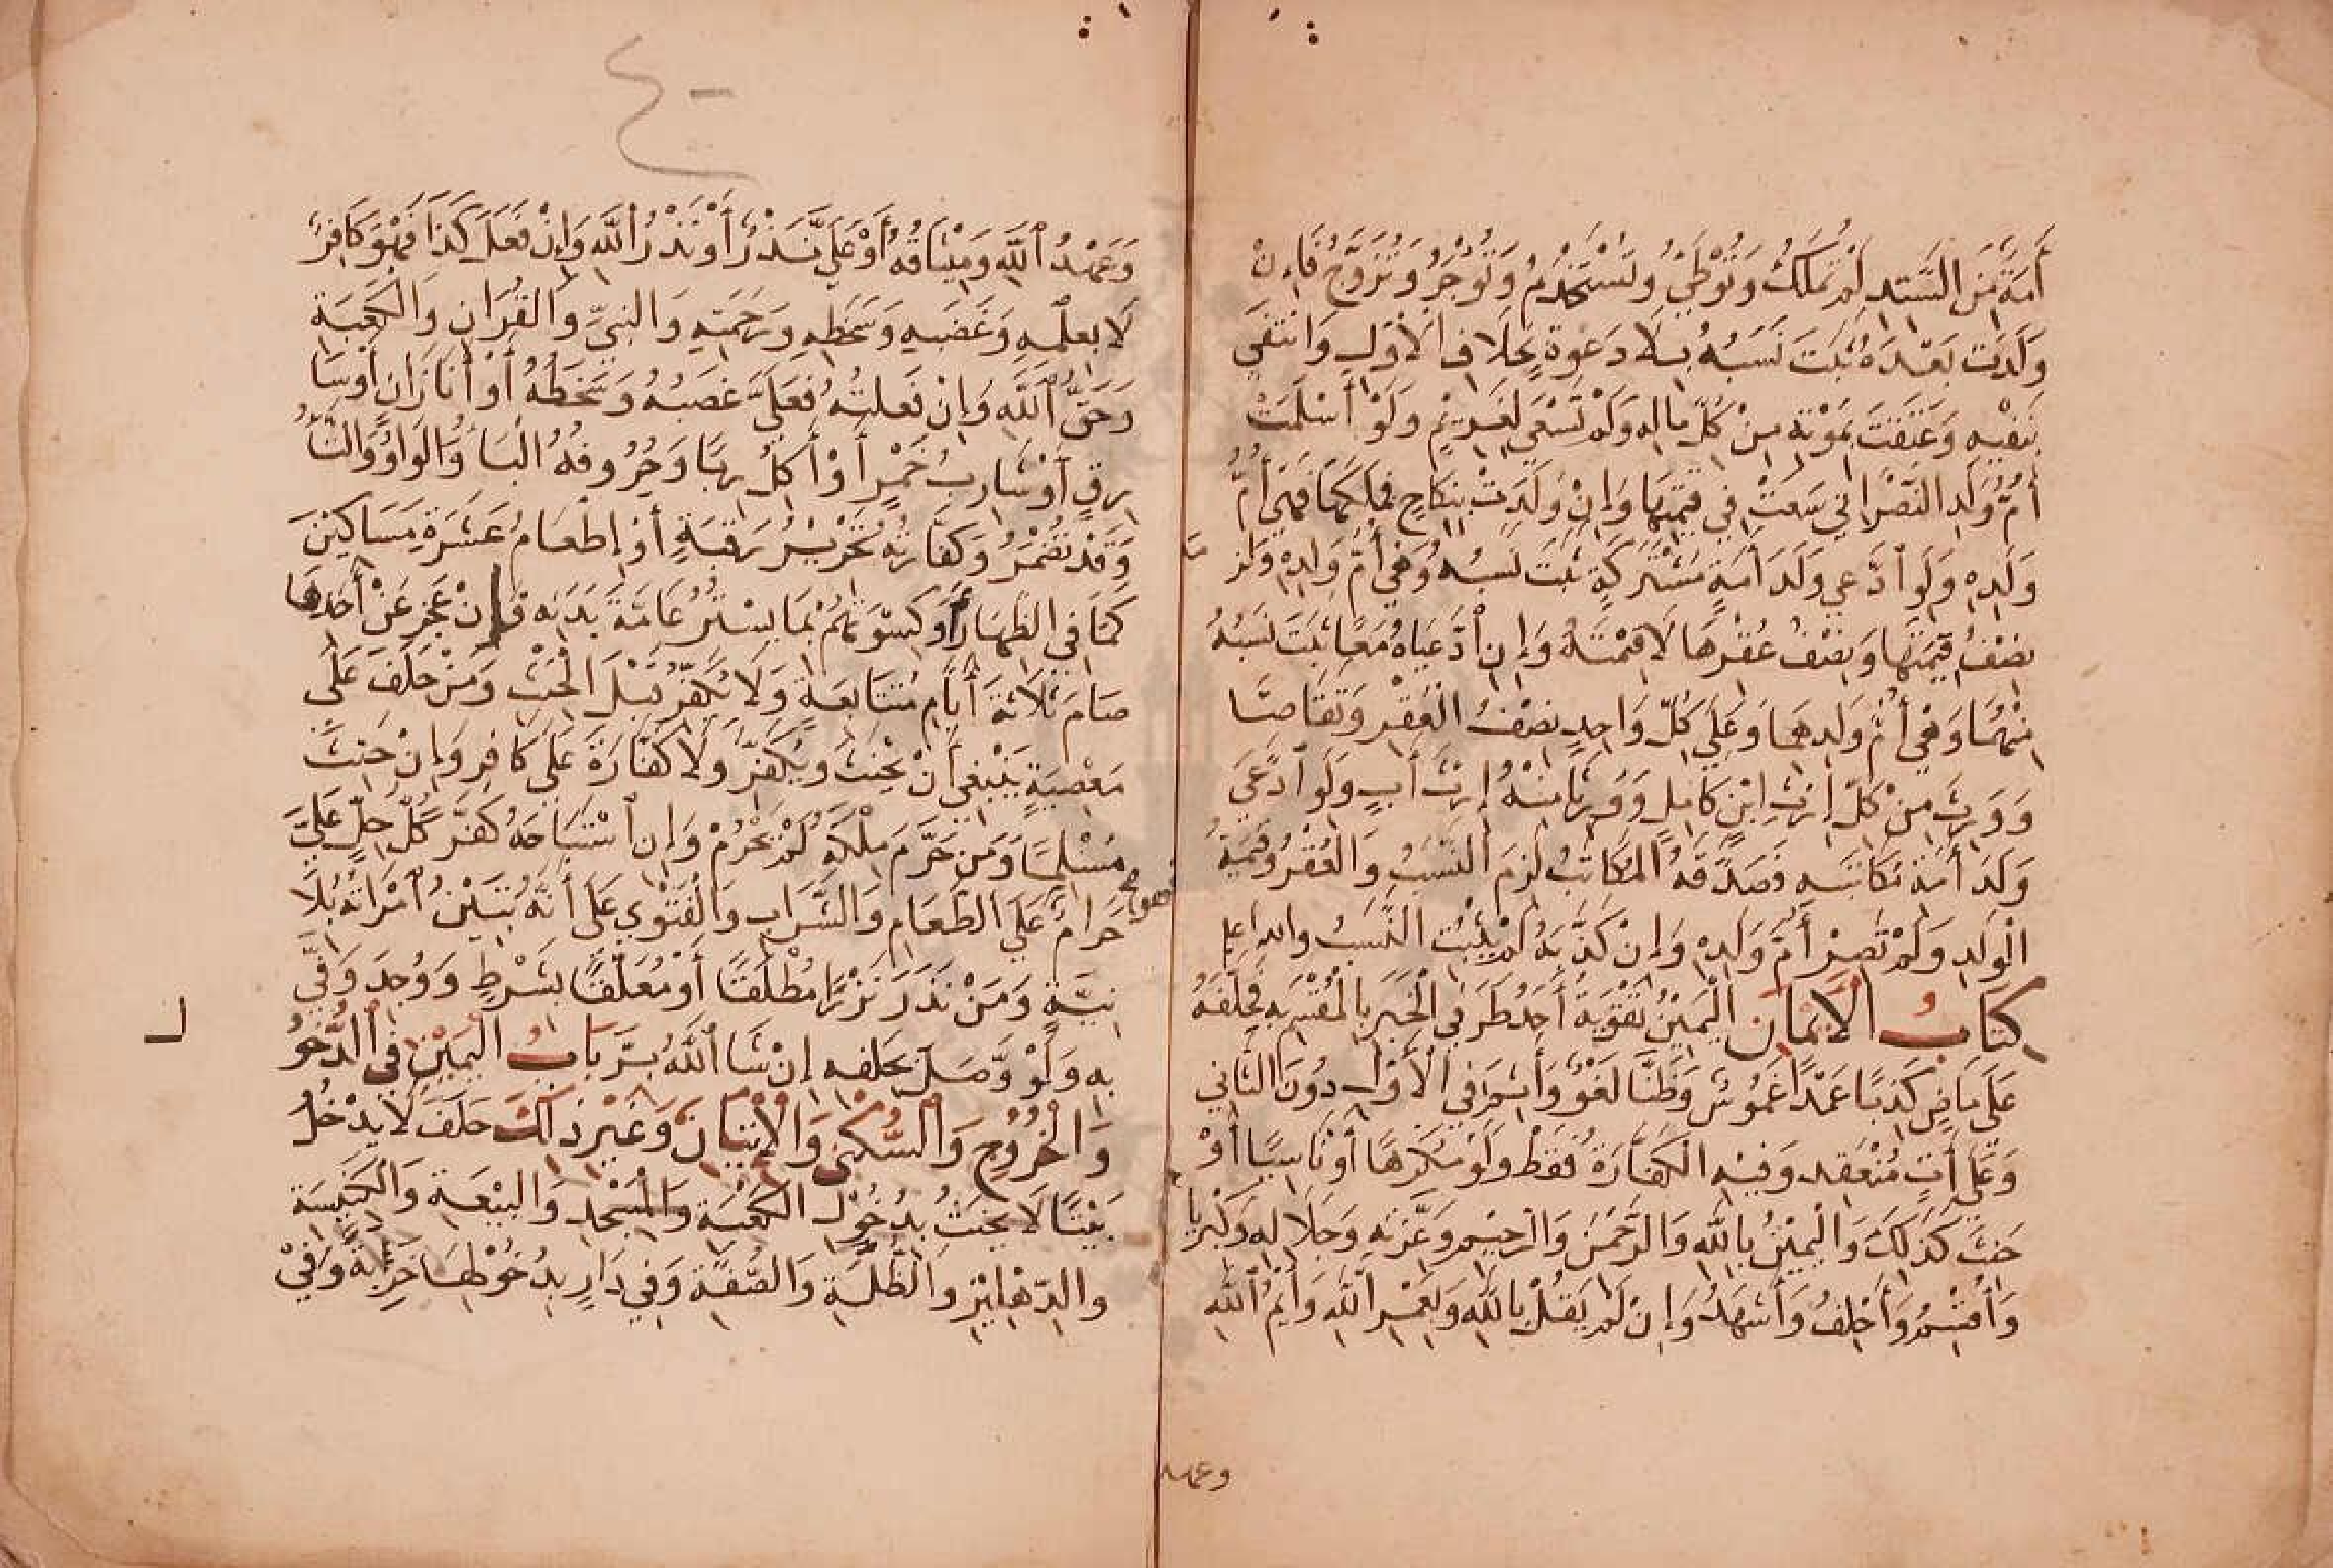 أَمَةٌ مِنَ السَّيِّدِ لَمْ تُمْلَكْ وَتُوْطَئُ وَتُسْتَخْدَمُ وَتُؤْجَرُ وَتُزَوَّجُ فَاِنْ
وَلَدَت بَعْدَهُ ثَبَتَ نَسَبُهُ بِلَا دَعْوَةٍ بِخِلَافِ الْأَوَّلِ وَانْتَفَى
بِنَفْيِهِ وَعَتَقَتْ بِمَوْتِهِ مِنْ كُلِّ مَالِهِ وَلَمْ تَسْعَ لِغَرِيْمٍ وَلَوْ أَسْلَمَتْ
أُمُّ وَلَدِ النَّصْرَانِي سَعَتْ فِي قِيْمَتِهَا وَإِنْ وَلَدَتْ بِنِكَاحٍ فَمَلَكَهَا فَهِيَ أُمُّ
وَلَدِهِ وَلَوِ ٱدَّعَى وَلَدَ أَمَةٍ مُشْتَرَكَةٍ ثَبَتَ نَسَبُهُ وَهِيَ أُمُّ وَلَدِهِ وَلَزِمَهُ
نِصْفُ قِيْمَتِهَا وَنِصْفُ عُقْرِهَا لَا قِيْمَتُهُ وَإِنِ ٱدَّعَيَاهُ مَعًا ثَبَتَ نَسَبُهُ
مِنْهُمَا وَهِيَ أُمُّ وَلَدِهِمَا وَعَلَى كُلِّ وَاحِدٍ نِصْفُ الْعُقْرِ وَتَقَاصَّا
وَوَرِثَ مِنْ كُلٍّ إِرْثَ ابْنٍ كَامِلٍ وَوَرِثَا مِنْهُ إِرْثَ أَبٍ وَلَوِ ٱدَّعَى
وَلَدَ أَمَةِ مُكَاتَبِهِ فَصَدَّقَهُ الْمُكَاتَبُ لَزِمَ النَّسَبُ وَالْعُقْرُ وَقِيْمَةُ
الْوَلَدِ وَلَمْ تَصِرْ أُمَّ وَلَدِهِ وَإِنْ كَذَّبَهُ لَمْ يَثْبُتِ النَّسَبُ والله اعلم
كِتَابُ الْأَيْمَانِ الْيَمِيْنُ تَقْوِيَةُ أَحَدِ طَرَفَيِ الْخَبَرِ بِالْمُقْسَمِ بِهِ فَحَلْفُهُ
عَلَى مَاضٍ كَذِبًا عَمْدًا غَمُوْسٌ وَظَنًّا لَغْوٌ وَأَثِمَ فِي الْأَوَّلِ دُوْنَ الثَّانِي
وَعَلَى آتٍ مُنْعَقِدٌ وَفِيْهِ الْكَفَّارَةُ فَقَطْ وَلَوْ مُكْرَهًا أَوْ نَاسِيًا أَوْ
حَنِثَ كَذَلِكَ وَالْيَمِيْنُ بِاللّٰهِ وَالرَّحْمٰنِ وَالرَّحِيْمِ وَعِزَّتِهِ وَجَلَالِهِ وَكِبْرِيَا
وَأُقْسِمُ وَأَحْلِفُ وَأَشْهَدُ وَإِنْ لَمْ يَقُلْ بِاللّٰهِ وَلَعَمْرُ اللّٰهِ وَايْمُ اللّٰهِ
وعهد
٤٠
وَعَهْدُ ٱللّٰهِ وَمِيْثَاقُهُ أَوْ عَلَيَّ نَذْرٌ أَوْ نَذْرُ اللّٰهِ وَإِنْ فَعَلَ كَذَا فَهُوَ كَافِرٌ
لَا بِعِلْمِهِ وَغَضَبِهِ وَسَخَطِهِ وَرَحْمَتِهِ وَالنَّبِيِّ وَالْقُرْآنِ وَالْكَعْبَةِ
وَحَقِّ ٱللّٰهِ وَإِنْ فَعَلْتُهُ فَعَلَيَّ غَضَبُهُ وَسَخَطُهُ أَوْ أَنَا زَانٍ أَوْ سَا
رِقٌ أَوْ شَارِبُ خَمْرٍ أَوْ أَكِلُ رِبًا وَحُرُوفُهُ الْبَا وَالْوَاوُ وَالتَّا
وَقَدْ تُضْمَرُ وَكَفَّارَتُهُ تَحْرِيْرُ رَقَبَةٍ أَوْ إِطْعَامُ عَشَرَةِ مَسَاكِيْنَ
كَمَا فِي الظِّهَارِ أَوْ كِسْوَتُهُمْ بِمَا يَسْتُرُ عَامَّةَ بَدَنِهِ فَإِنْ عَجَزَ عَنْ أَحَدِهَا
صَامَ ثَلَاثَةَ أَيَّامٍ مُتَتَابِعَةٍ وَلَا يُكَفِّرُ قَبْلَ الْحِنْثِ وَمَنْ حَلَفَ عَلَى
مَعْصِيَةٍ يَنْبَغِي أَنْ يَحْنَثَ وَيُكَفِّرَ وَلَا كَفَّارَةَ عَلَى كَافِرٍ وَإِنْ حَنِثَ
مُسْلِمًا وَمَنْ حَرَّمَ مِلْكَهُ لَمْ يَحْرُمْ وَإِنِ ٱسْتَبَاحَهُ كَفَّرَ كُلُّ حِلٍّ عَلَيَّ
حَرَامٌ عَلَى الطَّعَامِ وَالشَّرَابِ وَالْفَتْوَى عَلَى أَنَّهُ تَبِيْنُ ٱمْرَأَتُهُ بِلَا
نِيَّةٍ وَمَنْ نَذَرَ نَذْرًا مُطْلَقًا أَوْ مُعَلَّقًا بِشَرْطٍ وَوُجِدَ وَفَى
بِهِ وَلَوْ وَصَلَ بِحَلْفِهِ إِنْ شَا ٱللّٰهُ بَرَّ بَابُ الْيَمِيْنِ فِي الدُّخُوْ
وَالْخُرُوْجِ وَالسُّكْنَى وَالْإِتْيَانِ وَغَيْرِ ذَلِكَ حَلَفَ لَا يَدْخُلُ
بَيْتًا لَا يَحْنَثُ بِدُخُوْلِ الْكَعْبَةِ وَالْمَسْجِدِ وَالْبِيْعَةِ وَالْكَنِيْسَةِ
وَالدِّهْلِيْزِ وَالظُّلَّةِ وَالصُّفَّةِ وَفِي دَارٍ بِدُخُوْلِهَا خَرِبَةً وَفِيْ